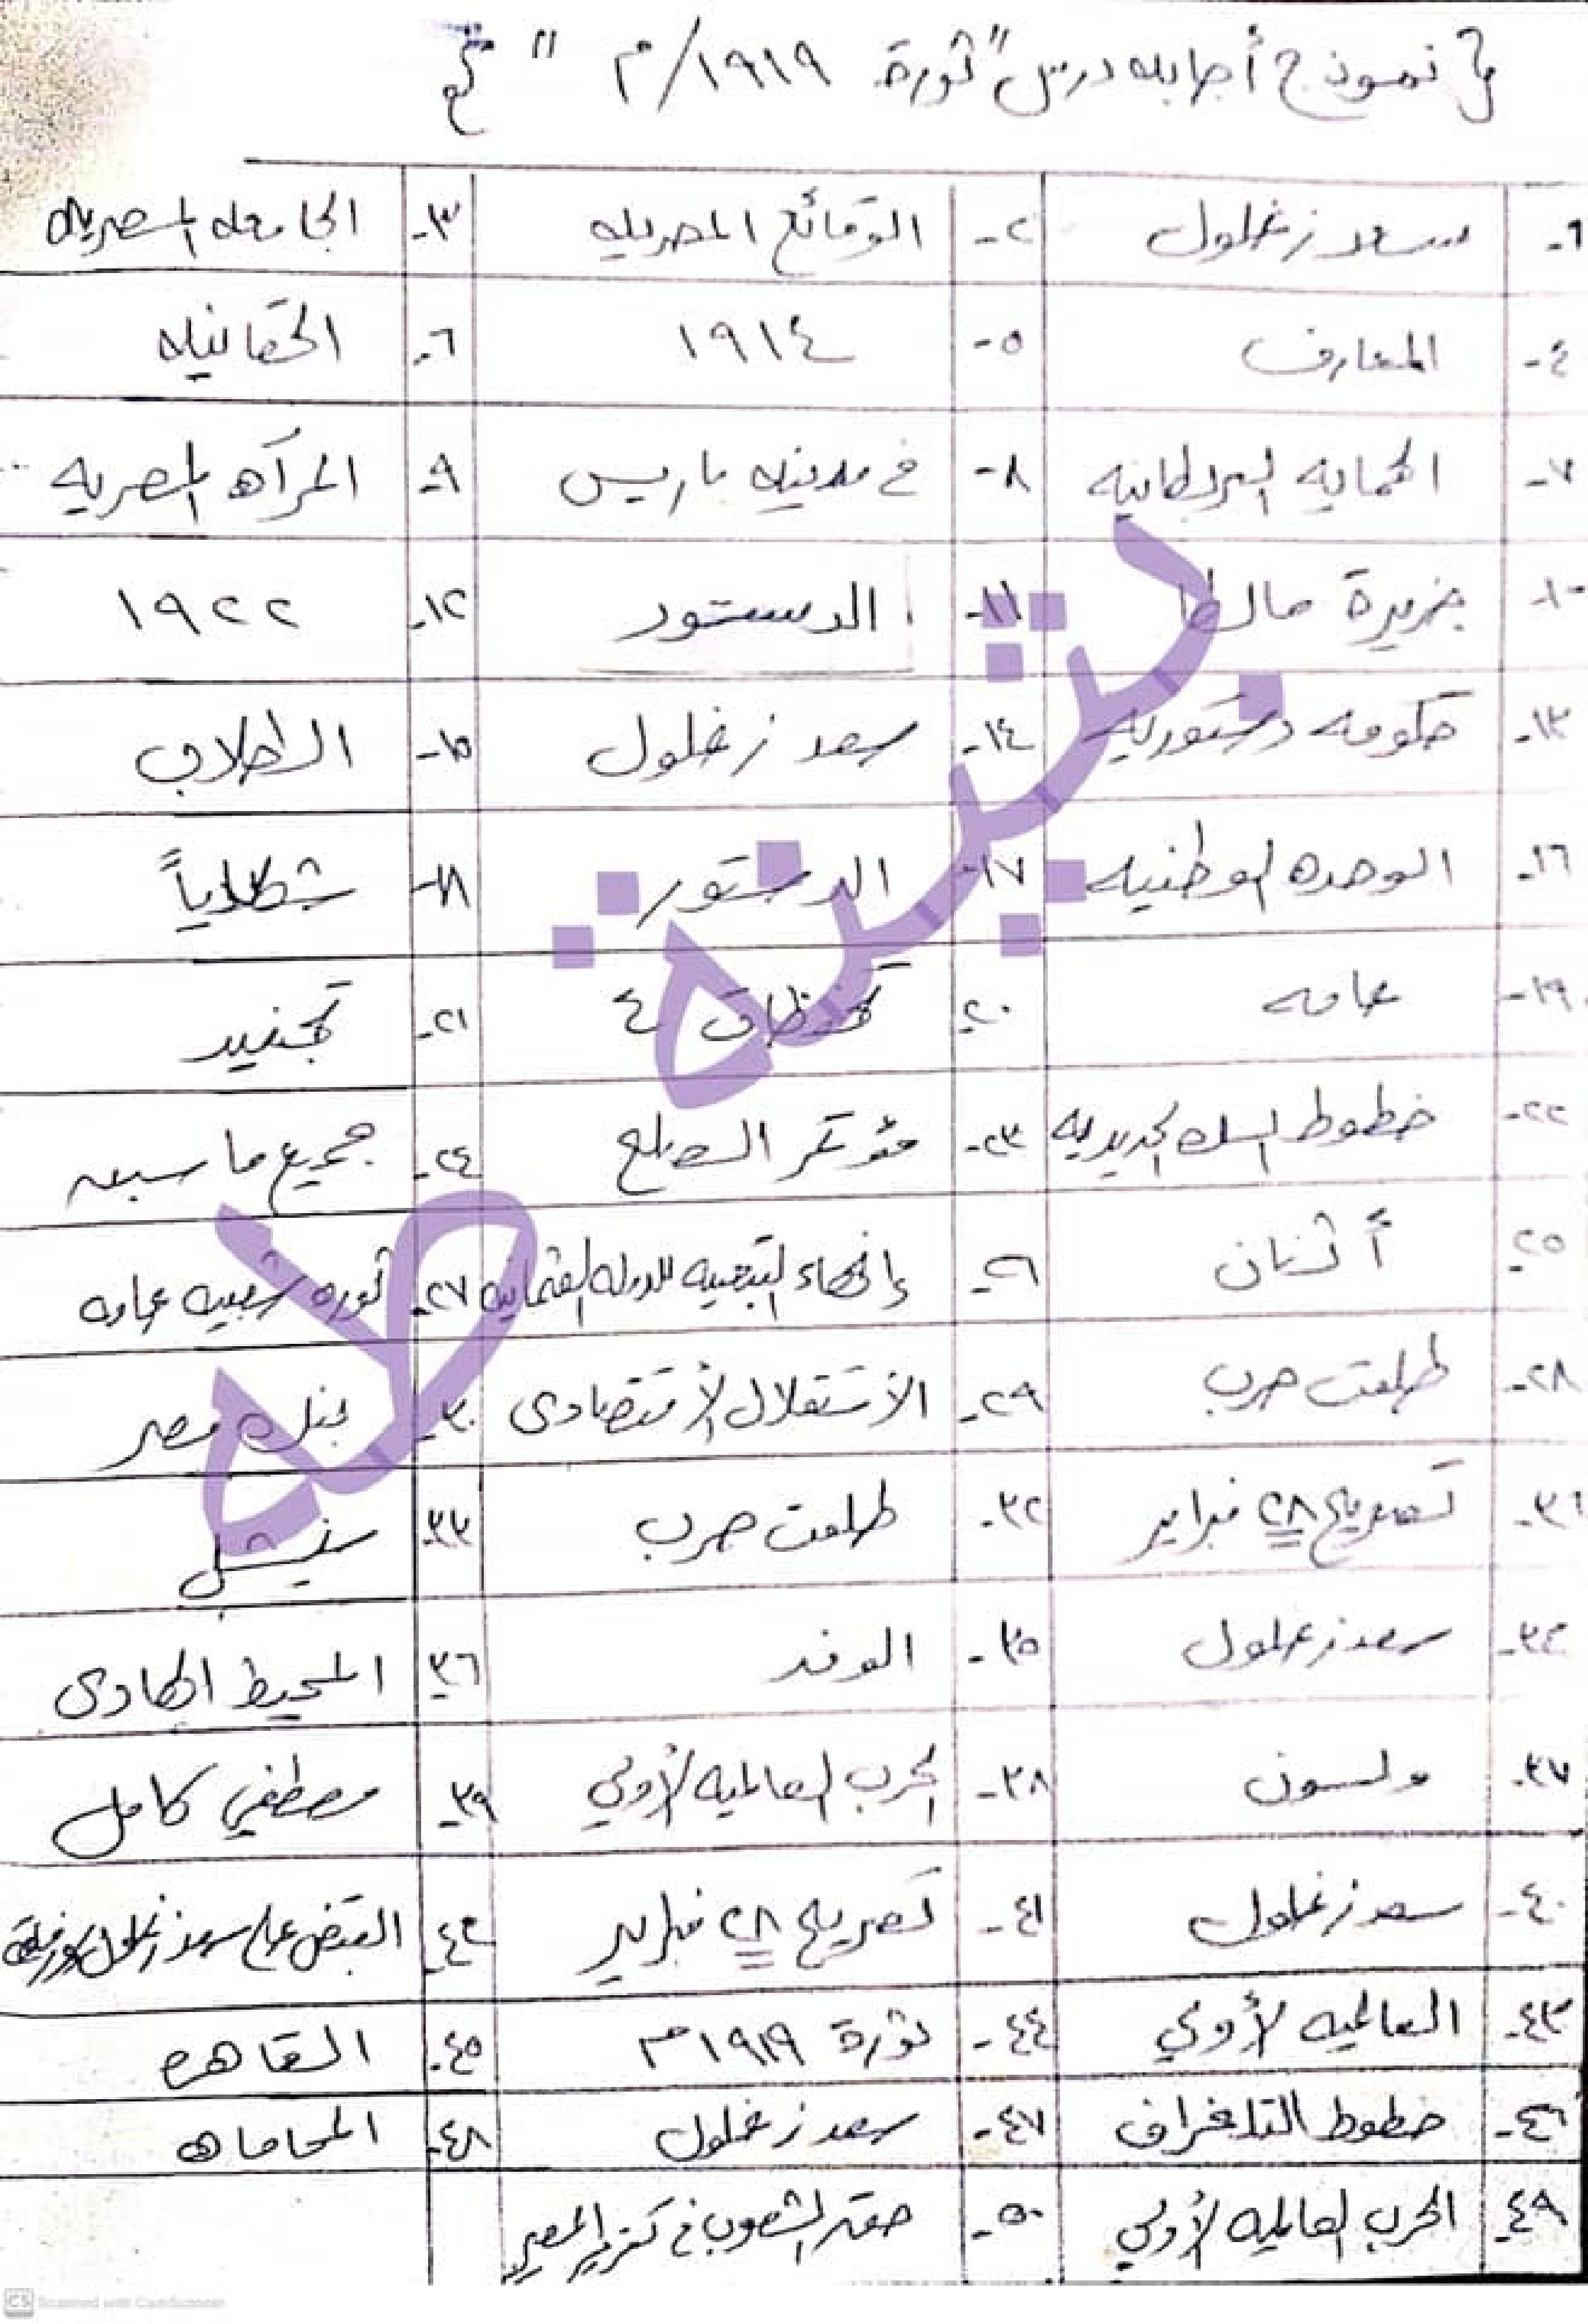 نموذج أجابه درس "ثورة ١٩١٩/م"
١- سعد زغلول ٢- الوقائع المصريه ٣- الجامعه المصريه
٤- المعارف ٥- ١٩١٤ ٦- الحقانيه
٧- الحمايه البريطانيه ٨- في مدينه باريس ٩- المرآه المصريه
١٠- جزيرة مالطا ١١- الدستور ١٢- ١٩٢٢
١٣- حكومه دستوريه ١٤- سعد زغلول ١٥- الطلاب
١٦- الوحده الوطنيه ١٧- الدستور ١٨- شكلياً
١٩- عامه ٢٠- تحفظات ٤ ٢١- تجنيد
٢٢- خطوط السك الحديديه ٢٣- مؤتمر الصلح ٢٤- جميع ما سبق
٢٥- أثنان ٢٦- إنهاء التبعيه للدوله العثمانيه ٢٧- ثوره شعبيه عامه
٢٨- طلعت حرب ٢٩- الأستقلال الأقتصادى ٣٠- بنك مصر
٣١- تصريح ٢٨ فبراير ٣٢- طلعت حرب ٣٣- سيشل
٣٤- سعد زغلول ٣٥- الوفد ٣٦- المحيط الهادى
٣٧- ولسون ٣٨- الحرب العالميه الأولي ٣٩- مصطفي كامل
٤٠- سعد زغلول ٤١- تصريح ٢٨ فبراير ٤٢- القبض علي سعد زغلول ورفاقه
٤٣- العالميه الأولي ٤٤- ثورة ١٩١٩م ٤٥- القاهره
٤٦- خطوط التلغراف ٤٧- سعد زغلول ٤٨- المحاماه
٤٩- الحرب العالميه الأولي ٥٠- حق الشعوب في تقرير المصير
CS Scanned with CamScanner